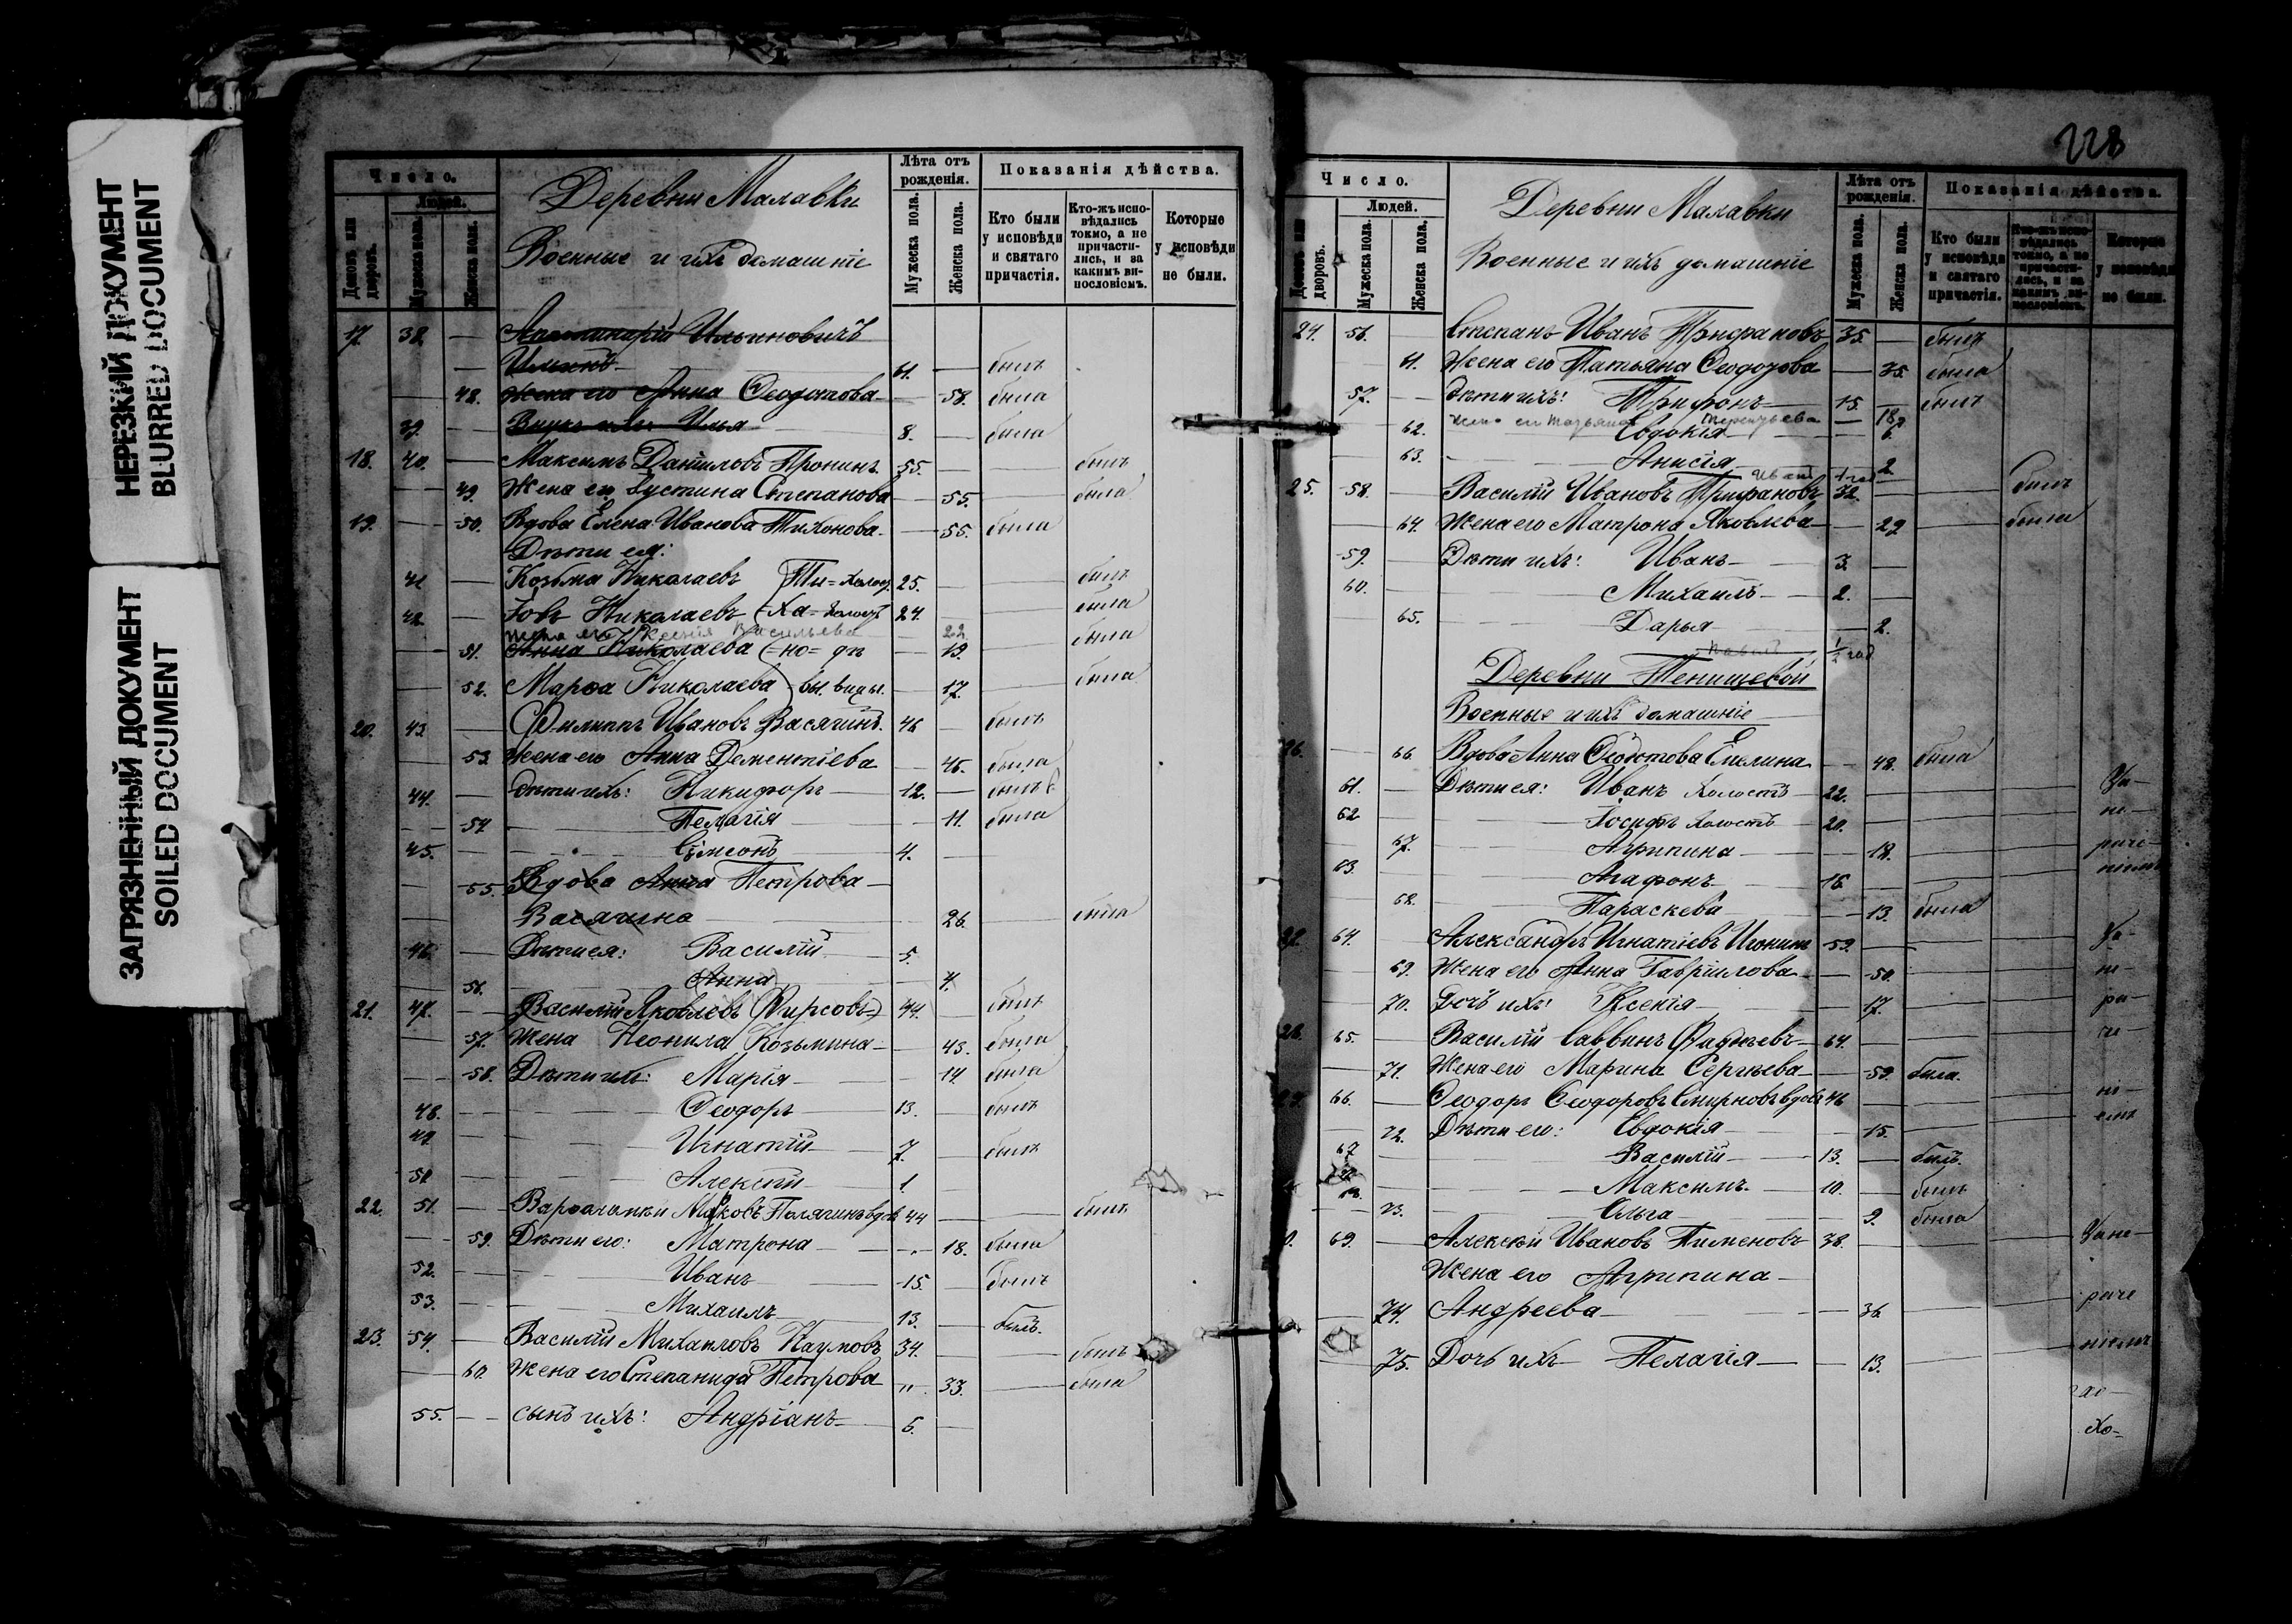 НЕРЕЗКИЙ ДОКУМЕНТ
BLURRED DOCUMENT
ЗАГРЯЗНЕННЫЙ ДОКУМЕНТ
SOILED DOCUMENT
Число.
Людей.
Домовъ или дворовъ.
Мужеска пола.
Женска пола.
Деревни Малавки
Военные и ихъ домашніе
Лѣта отъ рожденія.
Мужеска пола.
Женска пола.
Показанія дѣйства.
Кто были у исповѣди и святаго причастія.
Кто-жъ исповѣдались токмо, а не причастились, и за какимъ винословіемъ.
Которые у исповѣди не были.
17. 38. — Ильиновичъ
61. — былъ
48. Жена его Анна Ѳеодотова — 58. была
39. — Внукъ ихъ: Илья — 8. — была
18. 40. — Максимъ Даниловъ Пронинъ 55. — былъ
49. Жена его Іустина Степанова — 55. была
19. — 50. Вдова Елена Иванова Тихонова — 55. была
Дѣти ея:
41 — Козьма Николаевъ 25. — былъ
42 — Іовъ Николаевъ 24. была
жена его Ксенія Васильева 22
51. Анна Николаева — 19. была
52. Марѳа Николаева — 17. была
20. 43 — Филиппъ Ивановъ Васягинъ 46 — былъ
53. Жена его Анна Дементіева — 45. была
44. — Дѣти ихъ: Никифоръ — 12. — былъ
54 Пелагія — 11. была
45. Сѵмеонъ 4. —
55. Вдова Анна Петрова —
Васягина 26. — была
46 — Дѣти ея: Василій 5.
56. Анна 7.
21. 47. — Василій Яковлевъ Фирсовъ 44. — былъ
57. Жена Неонила Козьмина — 43. была
58. Дѣти ихъ: Марія — 14. была
48. Ѳеодоръ 13. былъ
49. Игнатій 7. былъ
50 Алексѣй 1.
22. 51. — Варѳоломей вдов 44 — былъ
59. Дѣти его: Матрона 18. была
52. Иванъ 15. былъ
53. Михаилъ 13. — былъ.
23. 54. — Василій Михаиловъ Наумовъ 34. — былъ
60. Жена его Степанида Петрова " 33. — была
55. — сынъ ихъ: Андріанъ 6. —
228
Число.
Людей.
Домовъ или дворовъ.
Мужеска пола.
Женска пола.
Деревни Малавки
Военные и ихъ домашніе
Лѣта отъ рожденія.
Мужеска пола.
Женска пола.
Показанія дѣйства.
Кто были у исповѣди и святаго причастія.
Кто-жъ исповѣдались токмо, а не причастились, и за какимъ винословіемъ.
Которые у исповѣди не были.
24. 56. Степанъ Иванъ Трифановъ 35. — былъ
61. Жена его Татьяна Ѳеодорова — 35 была
57. — Дѣти ихъ: Трифонъ 15. — былъ
жена его Татьяна 18
62. Евдокія 6.
63. Анисія 2
Иванъ 1 год
25. 58. — Василій Ивановъ Трифановъ 32. — былъ
64. Жена его Матрона Яковлева — 29 — была
59. — Дѣти ихъ: Иванъ 3 —
60. Михаилъ 2. —
65. Дарья — 2.
½ год
Деревни Тенищевой
Военные и ихъ домашніе
26. — 66. Вдова Анна Ѳеодотова Емелина — 48. была
61. — Дѣти ея: Иванъ холостъ 22.
62 Іосифъ холостъ 20.
67. Агрипина — 18.
63. Агафонъ 16.
68. Параскева — 13. была
27. 64. Александръ Игнатіевъ Игонинъ 59. —
69. Жена его Анна Гавріилова — 50.
70. Дочь ихъ: Ксенія 17.
28. 65. — Василій Саввинъ Фадѣевъ 64.
71. Жена его Марина Сергѣева — 59. была.
29. 66. — Ѳеодоръ Ѳеодоровъ Смирновъ вдов 46
72. Дѣти его: Евдокія 15.
67 Василій 13. — былъ.
68. Максимъ. 10. — былъ
73. Ольга 9. была
69. — Алексѣй Ивановъ Пименовъ 38.
Жена его Агрипина —
74. Андреева — 36.
75. Дочь ихъ Пелагія — 13.